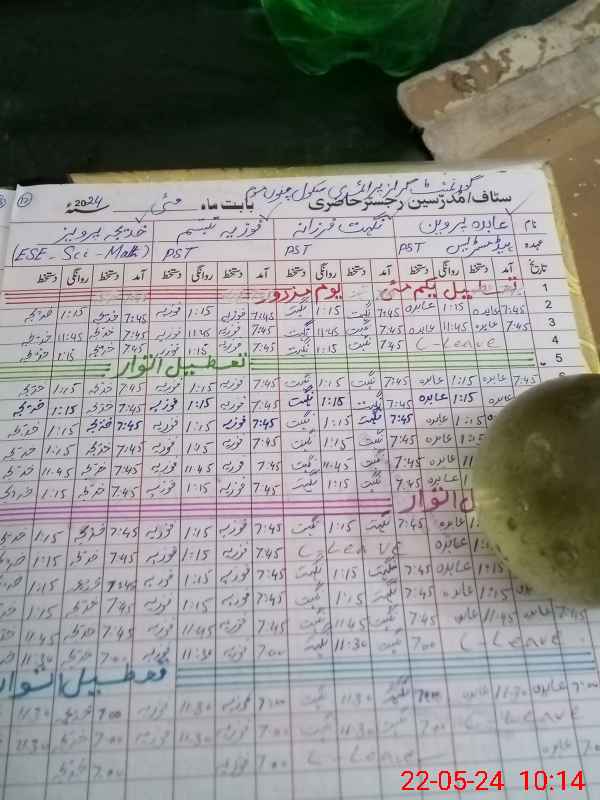 گورنمنٹ گرلز پرائمری سکول
سٹاف/مدرّسین رجسٹر حاضری بابت ماہ مئی 2024
نام عابدہ پروین نگہت فرزانہ فوزیہ تبسم خدیجہ پرویز
عہدہ PST PST PST (ESE - Sci - Math)
تاریخ آمد دستخط روانگی دستخط آمد دستخط روانگی دستخط آمد دستخط روانگی دستخط آمد دستخط روانگی دستخط
1 تعطیل یکم مئی یوم مزدور
2 7:45 عابدہ 1:15 عابدہ 7:45 نگہت 1:15 نگہت 7:45 فوزیہ 1:15 فوزیہ 7:45 خدیجہ 1:15 خدیجہ
3 7:45 عابدہ 11:45 عابدہ 7:45 نگہت 11:45 نگہت 7:45 فوزیہ 11:45 فوزیہ 7:45 خدیجہ 11:45 خدیجہ
4 C-Leave 7:45 نگہت 1:15 نگہت 7:45 فوزیہ 1:15 فوزیہ 7:45 خدیجہ 1:15 خدیجہ
5 تعطیل اتوار
7:45 عابدہ 1:15 عابدہ 7:45 نگہت 1:15 نگہت 7:45 فوزیہ 1:15 فوزیہ 7:45 خدیجہ 1:15 خدیجہ
عابدہ 1:15 عابدہ 7:45 نگہت 1:15 نگہت 7:45 فوزیہ 1:15 فوزیہ 7:45 خدیجہ 1:15 خدیجہ
1:15 عابدہ 7:45 نگہت 1:15 نگہت 7:45 فوزیہ 1:15 فوزیہ 7:45 خدیجہ 1:15 خدیجہ
عابدہ 7:45 نگہت 1:15 نگہت 7:45 فوزیہ 1:15 فوزیہ 7:45 خدیجہ 1:15 خدیجہ
عابدہ 7:45 نگہت 11:45 نگہت 7:45 فوزیہ 11:45 فوزیہ 7:45 خدیجہ 11:45 خدیجہ
عابدہ 7:45 نگہت 1:15 نگہت 7:45 فوزیہ 1:15 فوزیہ 7:45 خدیجہ 1:15 خدیجہ
اتوار
عابدہ 7:45 نگہت 1:15 نگہت 7:45 فوزیہ 1:15 فوزیہ 7:45 خدیجہ 1:15
عابدہ 7:45 C-Leave 7:45 فوزیہ 1:15 فوزیہ 7:45 خدیجہ 1:15
1:15 عابدہ 7:45 نگہت 1:15 نگہت 7:45 فوزیہ 1:15 فوزیہ 7:45 خدیجہ 1:15
1:15 عابدہ 7:45 نگہت 1:15 نگہت 7:45 فوزیہ 1:15 فوزیہ 7:45 خدیجہ 1:15
7:45 عابدہ 11:45 عابدہ 7:45 نگہت 11:45 نگہت 7:45 فوزیہ 11:45 فوزیہ 7:45 خدیجہ 11:45
C-Leave 7:00 نگہت 11:30 نگہت 7:00 فوزیہ 11:30 فوزیہ 7:00 خدیجہ 11:30
تعطیل اتوار
7:00 عابدہ 11:30 عابدہ 7:00 نگہت 11:30 نگہت 7:00 فوزیہ 11:30 فوزیہ 7:00 خدیجہ 11:30
C-Leave 7:00 نگہت 11:30 نگہت 7:00 فوزیہ 11:30 فوزیہ 7:00 خدیجہ 11:30
7:00 عابدہ C-Leave 7:00 فوزیہ 7:00 خدیجہ
22-05-24 10:14